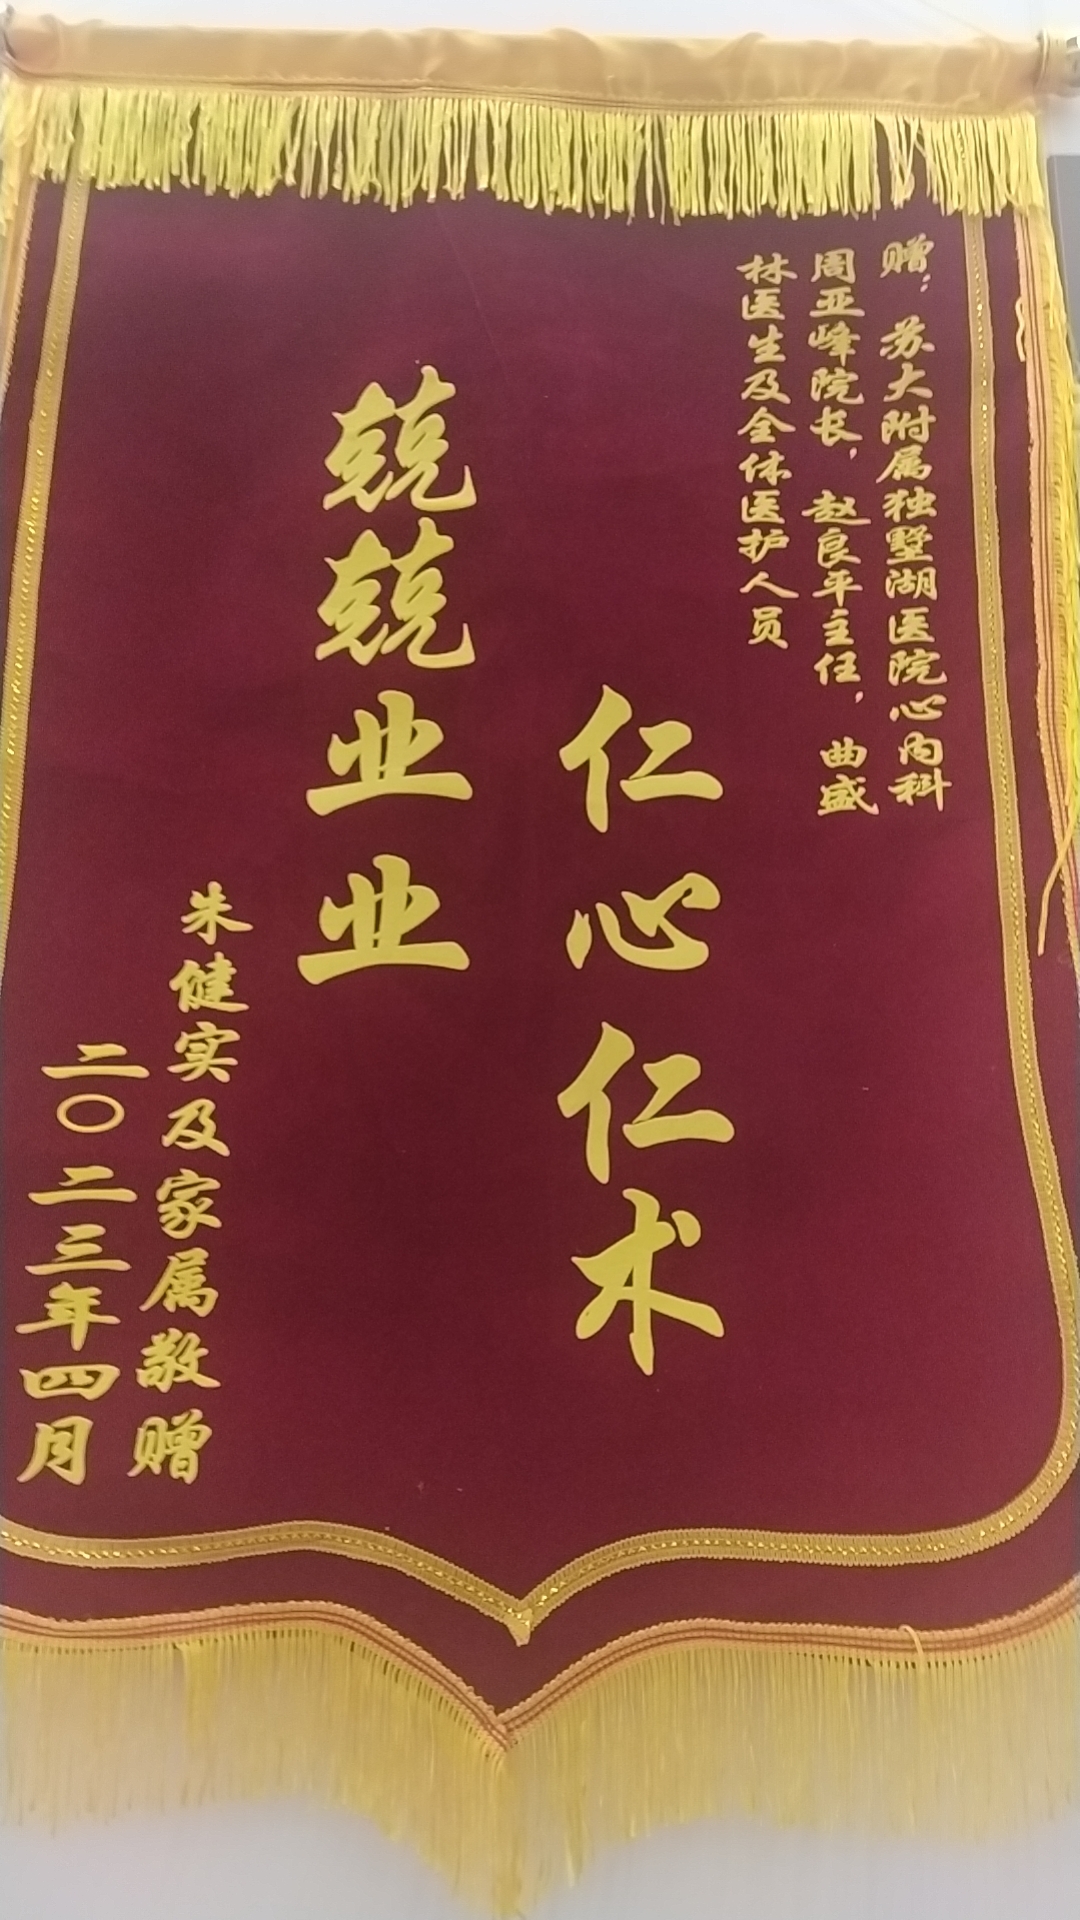 赠：苏大附属独墅湖医院心内科
周亚峰院长，赵良平主任，曲盛
林医生及全体医护人员
仁心仁术
兢兢业业
朱健实及家属敬赠
二〇二三年四月